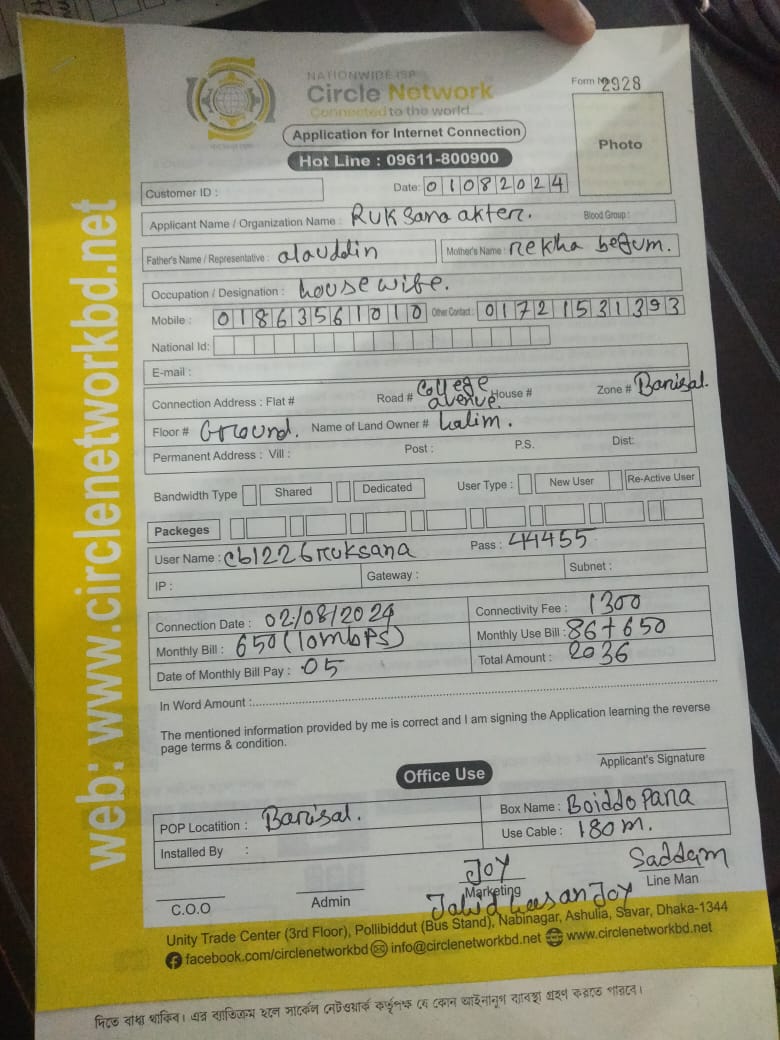 NATIONWIDE ISP
Circle Network
Connected to the world....
Form No 2928
Application for Internet Connection
Photo
Hot Line : 09611-800900
Customer ID :
Date: 01082024
Applicant Name / Organization Name : Ruksana akter. Blood Group :
Father's Name / Representative : alauddin Mother's Name : rekha begum.
Occupation / Designation : house wife.
Mobile : 01863561010 Other Contact : 01721531393
National Id:
E-mail :
Connection Address : Flat # Road # College avenue House # Zone # Barisal.
Floor # Ground. Name of Land Owner # halim.
Permanent Address : Vill : Post : P.S. Dist:
Bandwidth Type Shared Dedicated User Type : New User Re-Active User
Packeges
User Name : cb1226ruksana Pass : 44455
IP : Gateway : Subnet :
Connection Date : 02/08/2024 Connectivity Fee : 1300
Monthly Bill : 650 (10mbps) Monthly Use Bill : 86+650
Date of Monthly Bill Pay : 05 Total Amount : 2036
In Word Amount :
The mentioned information provided by me is correct and I am signing the Application learning the reverse
page terms & condition.
Applicant's Signature
Office Use
POP Locatition : Barisal. Box Name : Boiddo Para
Installed By : Use Cable : 180 m.
Joy Saddam
C.O.O Admin Marketing Line Man
Jahid hasan Joy
Unity Trade Center (3rd Floor), Pollibiddut (Bus Stand), Nabinagar, Ashulia, Savar, Dhaka-1344
facebook.com/circlenetworkbd info@circlenetworkbd.net www.circlenetworkbd.net
দিতে বাধ্য থাকিব। এর ব্যতিক্রম হলে সার্কেল নেটওয়ার্ক কর্তৃপক্ষ যে কোন আইনানুগ ব্যবস্থা গ্রহণ করতে পারবে।
web: www.circlenetworkbd.net